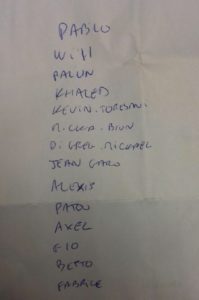 PABLO
Will
PALUN
KHALED
KEVIN.TORESANI
MICKA.BION
DI GREG.MICKAEL
JEAN GARO
ALEXIS
PATOU
AXEL
FIO
BETTO
FABRICE